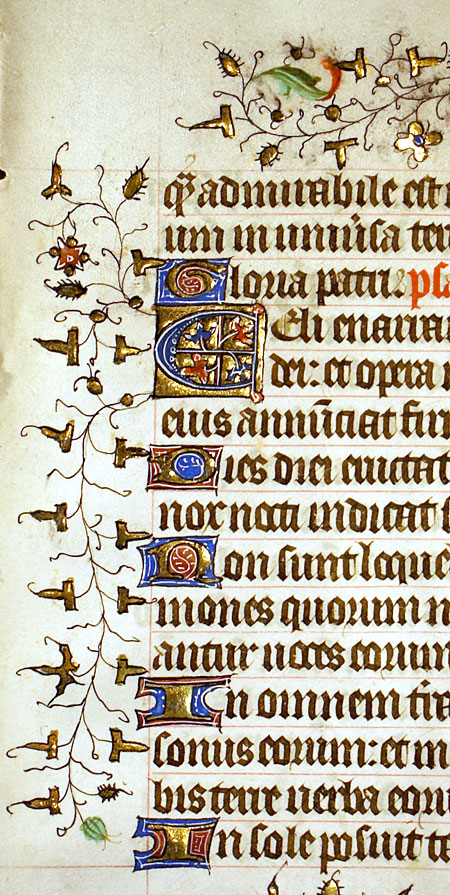 q̃ admirabile est
um in uniũsa ter
Gloria patri. psa
Celi enarra
dei: et opera
eius annũciat fir
Dies diei eructat
nox nocti indicat
Non sunt loque
mones quorum n
antur uoces eorum
In omnem tr̃a
sonus eorum: et in
bis terre uerba eoru
In sole posuit t